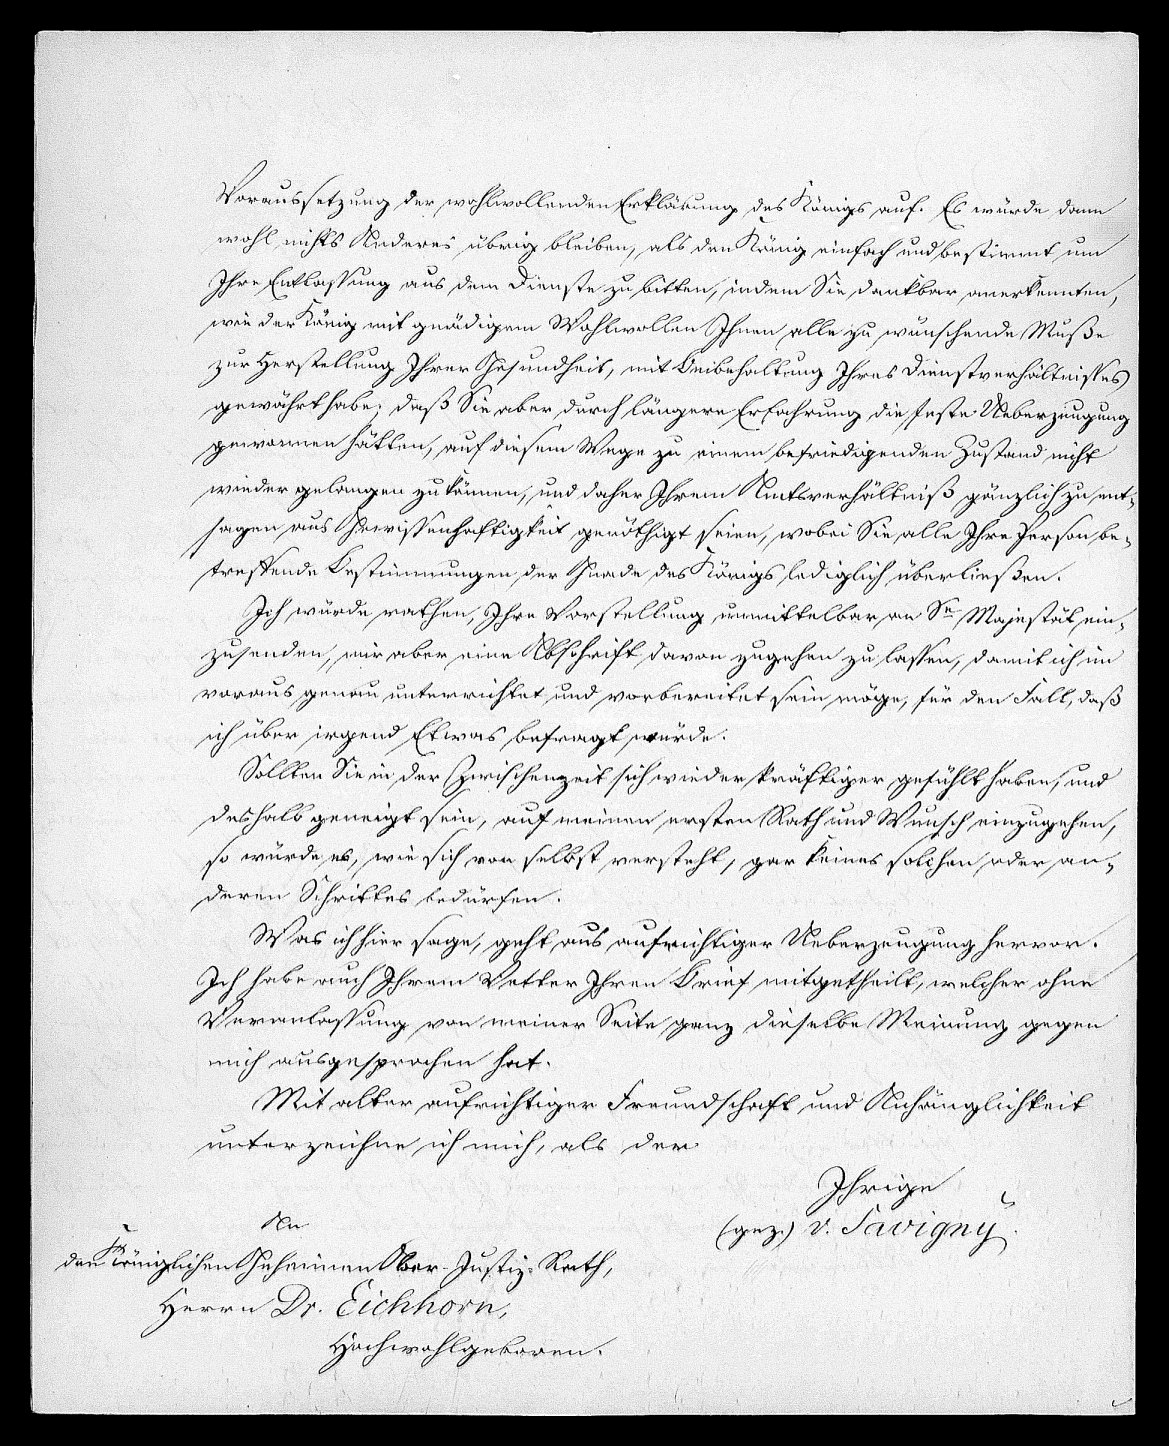 Voraussetzung der wohlwollenden Erklärung des Königs auf. Es würde dann
wohl nichts Anderes übrig bleiben, als den König einfach und bestimmt um
Ihre Entlassung aus dem Dienste zu bitten, indem Sie dankbar anerkennten,
wie der König mit gnädigem Wohlwollen Ihnen alle zu wünschende Muße
zur Herstellung Ihrer Gesundheit, mit Beibehaltung Ihres Dienstverhältnisses
gewährt habe; daß Sie aber durch längere Erfahrung die feste Ueberzeugung
gewonnen hätten, auf diesem Wege zu einem befriedigenden Zustand nicht
wieder gelangen zu können, und daher Ihrem Amtsverhältniß gänzlich zu ent-
sagen aus Gewissenhaftigkeit genöthigt seien, wobei Sie alle Ihre Person be-
treffende Bestimmungen der Gnade des Königs lediglich überließen.
Ich würde rathen, Ihre Vorstellung unmittelbar an Se Majestät ein-
zusenden, mir aber eine Abschrift davon zugehen zu lassen, damit ich im
voraus genau unterrichtet und vorbereitet sein möge, für den Fall, daß
ich über irgend Etwas befragt würde.
Sollten Sie in der Zwischenzeit sich wieder kräftiger gefühlt haben, und
deshalb geneigt sein, auf meinen ersten Rath und Wunsch einzugehen,
so würde es, wie sich von selbst versteht, gar keines solchen oder an-
deren Schrittes bedürfen.
Was ich hier sage, geht aus aufrichtiger Ueberzeugung hervor.
Ich habe auch Ihrem Vetter Ihren Brief mitgetheilt, welcher ohne
Veranlassung von meiner Seite ganz dieselbe Meinung gegen
mich ausgesprochen hat.
Mit alter aufrichtiger Freundschaft und Anhänglichkeit
unterzeichne ich mich, als der
Ihrige
(gez.) v. Savigny.
An
den Königlichen Geheimen Ober-Justiz-Rath,
Herrn Dr. Eichhorn,
Hochwohlgeboren.